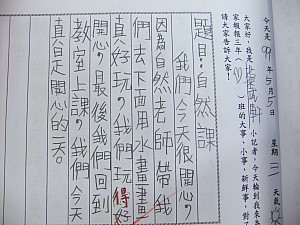 今天是 99 年 5 月 5 日 星期 三 天氣
大家好，我是 軒 小記者，今天輪到我來為
家報報三年 班的大事、小事、新鮮事，對了
請大家告訴大家！
題目：自然課
我們今天很開心。
因為自然老師帶我
們去下面用水畫畫
真好玩。我們玩得好
開心。最後我們回到
教室上課。我們今天
真是開心的一天。